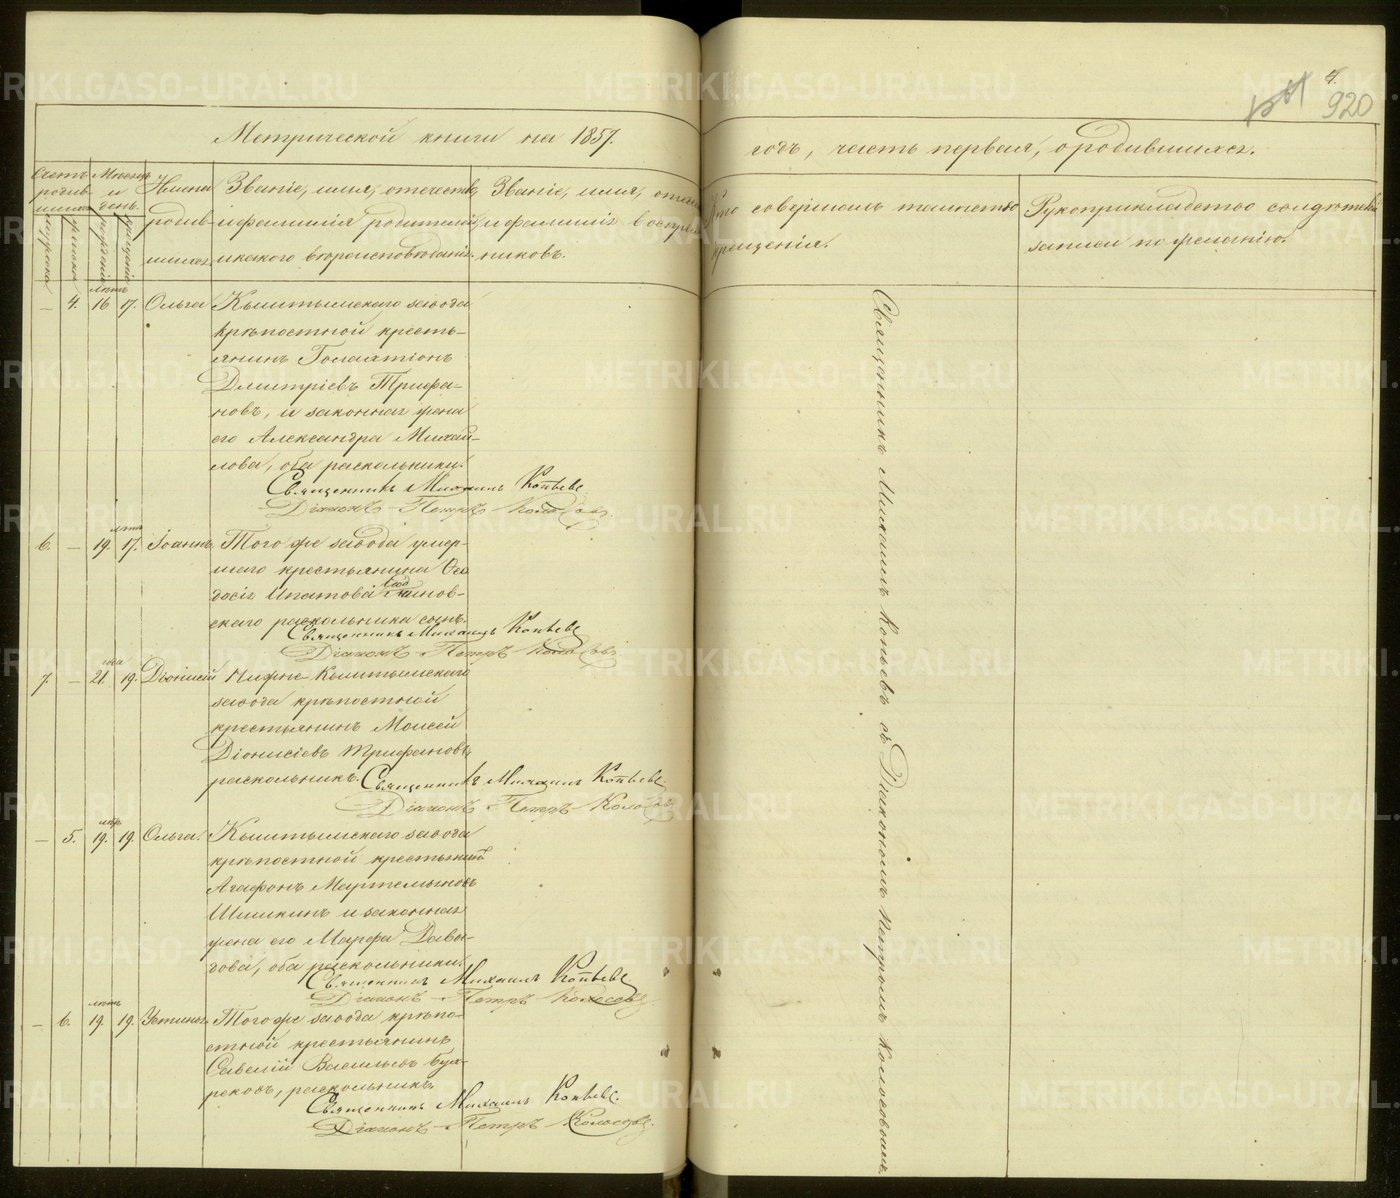 4.
920
Метрической книги на 1857.
годъ, часть первая, о родившихся.
Счетъ родив-шихся.
мужеска
женска
Мѣсяцъ и день.
рожденія
крещенія
Имена родив-шихся.
Званіе, имя, отчество,
и фамилія родителей, и
какого вѣроисповѣданія.
Званіе, имя, отчество
и фамилія воспріем-
никовъ.
Кто совершалъ таинство
крещенія.
Рукоприкладство свидѣтелей
записи по желанію.
— 4. 16 17. Ольга
Кыштымскаго завода
крѣпостной кресть-
янинъ
Дмитріевъ Трифа-
новъ, и законная жена
его Александра Михай-
лова, оба раскольники.
Священникъ Михаилъ Копьевъ
Діаконъ Петръ Колосовъ.
6. — 19. 17. Іоаннъ.
Того же завода умер-
шаго крестьянина Ѳео
досія Ипатова
скаго раскольника сынъ.
Священникъ Михаилъ Копьевъ
Діаконъ Петръ Колосовъ
7. — 21 19. Діонисій
Нижне Кыштымскаго
завода крѣпостной
крестьянинъ Моисей
Діонисіевъ Трифановъ,
раскольникъ.
Священникъ Михаилъ Копьевъ.
Діаконъ Петръ Колосовъ
— 5. 19. 19. Ольга.
Кыштымскаго завода
крѣпостной крестьянинъ
Агафонъ Мартемьяновъ
Шишкинъ и законная
жена его Марфа Давы-
дова, оба раскольники.
Священникъ Михаилъ Копьевъ
Діаконъ Петръ Колосовъ
— 6. 19. 19. Устинья.
Того же завода крѣпо-
стной крестьянинъ
Савелій Васильевъ
раскольникъ.
Священникъ Михаилъ Копьевъ.
Діаконъ Петръ Колосовъ.
Священникъ Михаилъ Копьевъ съ Діакономъ Петромъ Колосовымъ.
METRIKI.GASO-URAL.RU